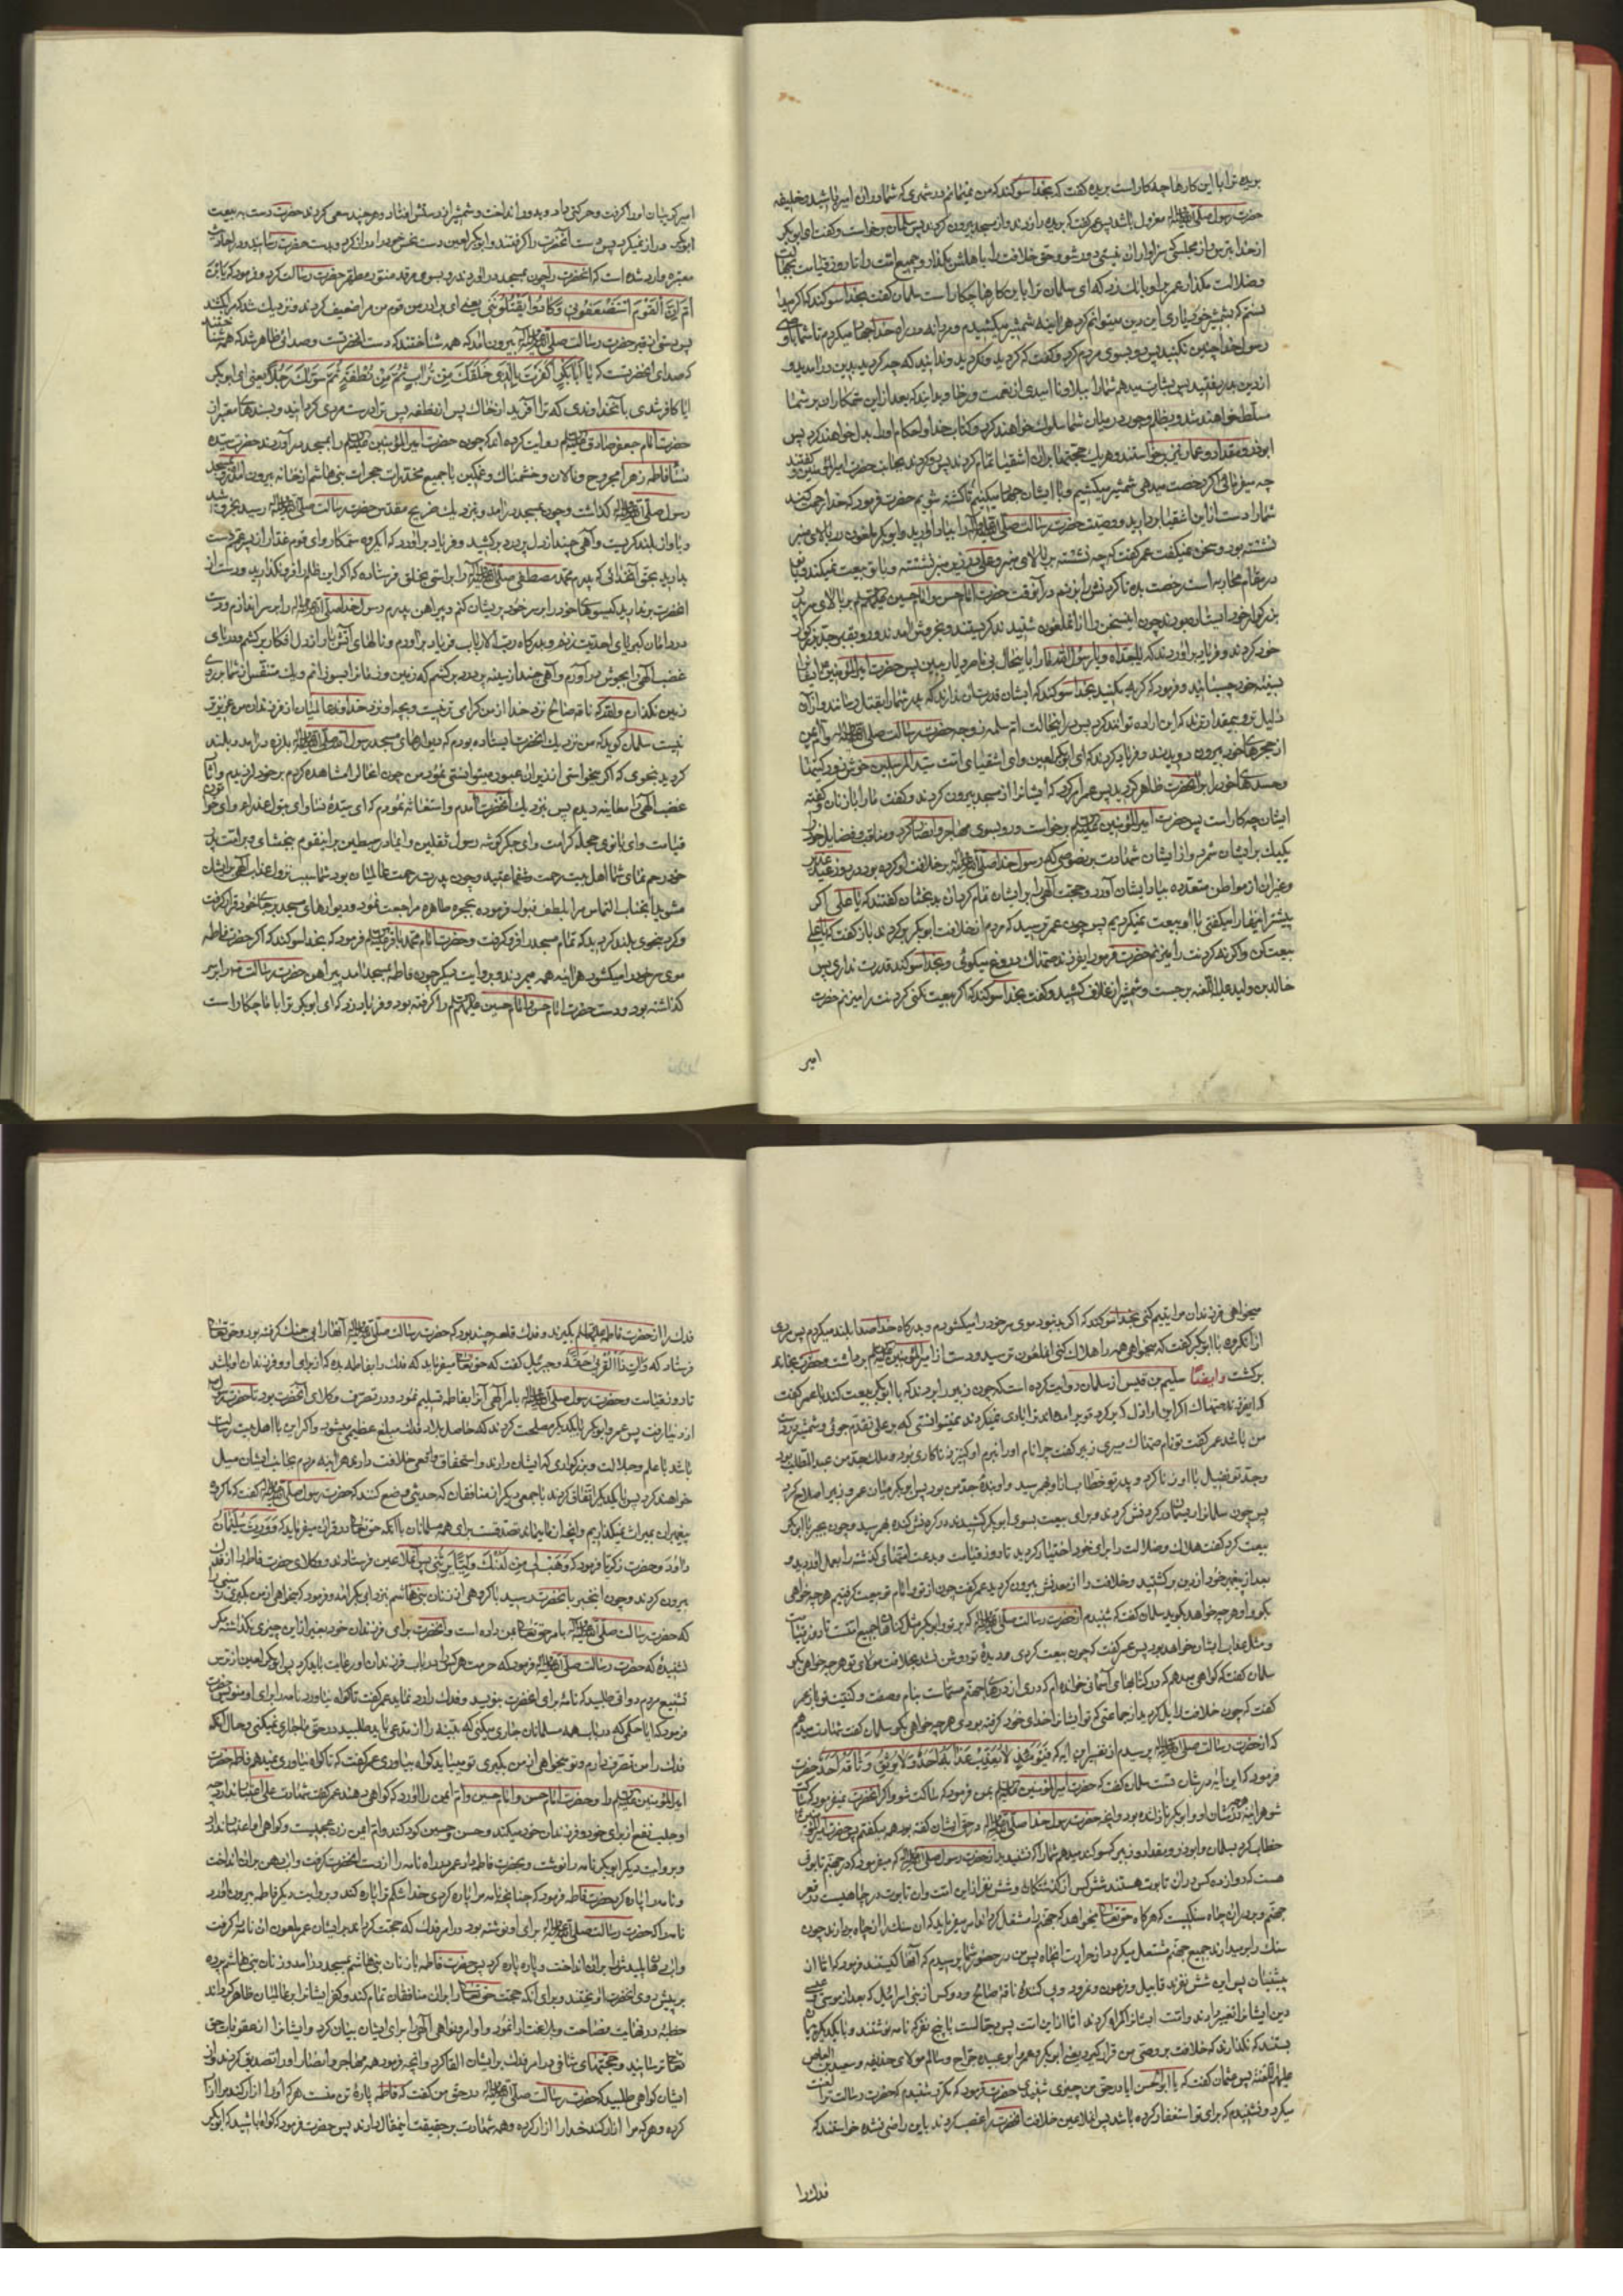 بریده ترا با این کارها چه کار است بریده گفت که بخدا سوگند که من نمیمانم در شهری که شما در ان امیر باشید و خلیفه
حضرت رسول صلی الله علیه و اله معزول باشد پس عمر گفت که بریده را زدند و از مسجد بیرون کردند پس سلمان برخواست و گفت ای ابوبکر
از خدا بترس و از مجلسی که سزاوار ان نیستی دور شو و حق خلافت را باهلش بگذار و جمیع امت را تا روز قیامت بجهالت
و ضلالت مگذار عمر بر او بانک زد که ای سلمان ترا با این کارها چکار است سلمان گفت بخدا سوگند که اگر میدا
نستم که بشمشیر خود یاری این دین میتوانم کرد هر اینه شمشیر میکشیدم و مردانه در راه خدا جهاد میکردم تا شما با وصی
رسول خدا چنین نکنید پس رو بسوی مردم کرد و گفت که کردید و نکردید و ندانید که چه کردید
از دین بدر رفتید پس بشارت میدهم شما را ببلا و ناامیدی از نعمت و رخا و بدانید که بعد از این ستمکاران بر شما
مسلط خواهند شد و بظلم و جور در میان شما سلوک خواهند کرد و کتاب خدا و احکام او را بدل خواهند کرد پس
ابوذر و مقداد و عمار نیز برخواستند و هر یک حجتها بران اشقیا تمام کردند پس رو کردند بجانب حضرت امیر المؤمنین و گفتند
چه میفرمائی اگر رخصت میدهی شمشیر میکشیم و با ایشان جهاد میکنیم تا کشته شویم حضرت فرمود که خدا رحمت کند
شما را دست از این اشقیا بردارید و وصیت حضرت رسالت صلی الله علیه و اله را بیاد اورید و ابوبکر ملعون در بالای منبر
نشسته بود و سخن نمیگفت عمر گفت که چه نشسته بر بالای منبر و علی در زیر منبر نشسته و با تو بیعت نمیکند و با تو
در مقام محاربه است رخصت بده تا گردنش را بزنم در آنوقت حضرت امام حسن و امام حسین علیهما السلم بر بالای سر پدر
بزرگوار خود ایستاده بودند چون این سخن را از ان ملعون شنیدند گریستند و بخروش آمدند و رو بقبر جد بزرگوار
خود کردند و فریاد برآوردند که یا جداه و یا رسول الله ما را باین حال بی ناصر و یار ببین پس حضرت امیر المؤمنین ایشانرا
بسینه خود چسبانید و فرمود که گریه مکنید بخدا سوگند که ایشان قدرت ان ندارند که پدر شما را بقتل رسانند و از ان
ذلیل تر و بیمقدار ترند که این اراده توانند کرد پس در اینحالت ام سلمه زوجه حضرت رسالت صلی الله علیه و اله و ام ایمن
از حجرهای خود بیرون دویدند و فریاد کردند که ای ابوبکر لعین و ای اشقیای امت سید المرسلین خوش زود کینها
و حسدهای خود را بر آنحضرت ظاهر کردید پس عمر امر کرد که ایشانرا از مسجد بیرون کردند و گفت ما را با زنان و گفته
ایشان چه کار است پس حضرت امیر المؤمنین علیه السلم برخواست و رو بسوی مهاجر و انصار کرد و مناقب و فضایل خود را
یکیک بر ایشان شمرد و از ایشان شهادت بر نصوصی که رسول خدا صلی الله علیه و اله بر خلافت او کرده بود در روز غدیر
و غیر ان از مواطن متعدده بیاد ایشان آورد و حجت الهی را بر ایشان تمام کرد ان بدبختان گفتند که یا علی اگر
پیشتر اینها را میگفتی با او بیعت نمیکردیم پس چون عمر ترسید که مردم از خلافت ابوبکر برگردند باز گفت که یا علی
بیعت کن و اگرنه گردنت را میزنم حضرت فرمود ایفرزند صهاک دروغ میگوئی و بخدا سوگند قدرت نداری پس
خالد بن ولید علیه اللعنه برجست و شمشیر از غلاف کشید و گفت بخدا سوگند که اگر بیعت نکنی گردنت را میزنم حضرت
امیر
امیر گریبان او را گرفت و حرکتی داد و بدور انداخت و شمشیر از دستش افتاد و هر چند سعی کردند حضرت دست به بیعت
ابوبکر دراز نمیکرد پس دست آنحضرت را گرفتند و ابوبکر لعین دست نحس خود را دراز کرد و بدست حضرت رسانید و در احادیث
معتبره وارد شده است که آنحضرت را چون بمسجد در آوردند رو بسوی مرقد منور مطهر حضرت رسالت کرد و فرمود که یا بن
ام ان القوم استضعفونی و کادوا یقتلوننی یعنی ای برادر من قوم من مرا ضعیف کردند و نزدیک شد که مرا بکشند
پس دستی از قبر حضرت رسالت صلی الله علیه و اله بیرون آمد که همه شناختند که دست آنحضرتست و صدائی ظاهر شد که همه شناختند
که صدای آنحضرتست که یا ابابکر اکفرت بالذی خلقک من تراب ثم من نطفة ثم سویک رجلا یعنی ای ابوبکر
ایا کافر شدی با آنخداوندی که ترا آفرید از خاک پس از نطفه پس ترا درست مردی گردانید و بسندهای معتبر از
حضرت امام جعفر صادق علیه السلم روایت کرده اند که چون حضرت امیر المؤمنین علیه السلم را بمسجد در آوردند حضرت سیده
نسا فاطمه زهرا مجروح و نالان و خشمناک و غمگین با جمیع مخدرات حجرات بنی هاشم از خانه بیرون آمد و رو بمسجد
رسول صلی الله علیه و اله گذاشت و چون بمسجد در آمد و بنزدیک ضریح مقدس حضرت رسالت صلی الله علیه و اله رسید بخروش آمد
و باواز بلند گریست و آهی چند از دل پر درد بر کشید و فریاد بر آورد که ای گروه ستمکار و ای قوم غدار از پسر عم دست
بدارید بحق آنخدائی که پدرم محمد مصطفی صلی الله علیه و اله را براستی بخلق فرستاده که اگر این ظلم را فرو نگذارید و دست از
آنحضرت بر ندارید گیسوهای خود را بر سر خود پریشان کنم و پیراهن پدرم رسول خدا صلی الله علیه و اله را بر سر اندازم و رو
بدرگاه کبریای احدیت رفته و بدرگاه رب الارباب فریاد بر آورم و نالهای آتش بار از دل افگار بر کشم و دریای
غضب الهی را بجوش در آورم و آهی چند از سینه پر درد بر کشم که زمین و زمانرا بسوزانم و یک متنفس از شما بر روی
زمین نگذارم والله که ناقه صالح نزد خدا از من گرامی تر نیست و بچه او نزد خداوند عالمیان از فرزندان من عزیزتر
نیست سلمان گوید که من نزدیک آنحضرت ایستاده بودم که دیوارهای مسجد رسول الله صلی الله علیه و اله بلرزه در آمد و بلند
گردید بنحوی که اگر میخواستی از زیر ان عبور میتوانستی نمود من چون انحال را مشاهده کردم بر خود لرزیدم و آثار
غضب الهی را معاینه دیدم پس بنزدیک آنحضرت آمدم و استغاثه نمودم که ای سیدۀ نسا و ای بتول عذرا و ای خاتون
قیامت و ای بانوی حجله کرامت و ای جگر گوشه رسول ثقلین و ایمادر سبطین بر اینقوم ببخشای و بر امت پدر
خود رحم نمای شما اهل بیت رحمت و شفاعتید و چون پدرت رحمت عالمیان بود شما سبب نزول عذاب الهی بر ایشان
مشوید آنجناب التماس مرا بلطف قبول فرموده بحجره طاهره مراجعت نمود و دیوارهای مسجد بر جای خود قرار گرفت
و گرد بنحوی بلند گردید که تمام مسجد را فرو گرفت و حضرت امام محمد باقر علیه السلم فرمود که بخدا سوگند که اگر حضرت فاطمه
موی سر خود را میگشود هر اینه همه میمردند و بروایت دیگر چون فاطمه بمسجد آمد پیراهن حضرت رسالت را بر سر
گذاشته بود و دست حضرت امام حسن و امام حسین علیهما السلم را گرفته بود و فریاد زد که ای ابوبکر ترا با ما چکار است
میخواهی فرزندان مرا یتیم کنی بخدا سوگند که اگر بد نبود موی سر خود را میگشودم و بدرگاه خدا صدا بلند میکردم پس مردی
از آنگروه با ابوبکر گفت که میخواهی همه را هلاک کنی انملعون ترسید و دست از امیر المؤمنین علیه السلم برداشت و حضرت بخانه
برگشت وایضا سلیم بن قیس از سلمان روایت کرده است که چون زبیر را بردند که با ابوبکر بیعت کند با عمر گفت
که ایفرزند صهاک اگر این اراذل که بر گرد تو بر امده اند ترا یاری نمیکردند نمیتوانستی که بر علی تقدم جوئی و شمشیر در دست
من باشد عمر گفت تو نام صهاک میبری زبیر گفت چرا نام او را نبرم او کنیزی زناکاری بود و ملک جد من عبد المطلب بود
و جد تو نفیل با او زنا کرد و پدر تو خطاب از او بهم رسید و او بندۀ جد من بود پس ابوبکر میان عمر و زبیر اصلاح کرد
پس چون سلمانرا ریسمان در گردنش کردند و برای بیعت بسوی ابوبکر کشیدند در گردنش کنده بهم رسید و چون بجبر با ابوبکر
بیعت کرد گفت هلاک و ضلالت را برای خود اختیار کردید تا روز قیامت و بدعت امتهای گذشته را بعمل اوردید و
بعد از پیغمبر خود از دین بر گشتید و خلافت را از معدنش بیرون کردید عمر گفت چون از تو و امام تو بیعت گرفتیم هر چه خواهی
بگو و او هر چه خواهد بگوید سلمان گفت که شنیدم از حضرت رسالت صلی الله علیه و اله که بر تو و ابوبکر مثل گناهان جمیع امت تا روز قیامت
و مثل عذاب ایشان خواهد بود پس عمر گفت که چون بیعت کردی و دیدۀ تو روشن نشد بخلافت مولای تو هر چه خواهی بگو
سلمان گفت که گواهی میدهم که در کتابهای آسمانی خوانده ام که دری از درهای جهنم مسمات بنام و صفت و کنیت تو باز عمر
گفت که چون خلافت زایل گردید از جماعتی که تو ایشانرا خدای خود گرفته بودی هر چه خواهی بگو سلمان گفت شهادت میدهم
که از حضرت رسالت صلی الله علیه و اله پرسیدم از تفسیر این ایه که فیومئذ لا یعذب عذابه احد ولا یوثق وثاقه احد حضرت
فرمود که این ایه در شان تست سلمان گفت که حضرت امیر المؤمنین علیه السلم بمن فرمود که ساکت شو و اگر آنحضرت نمیفرمود که ساکت
شو هر اینه آنچه در شان او و ابوبکر نازل شده بود و انچه حضرت رسول خدا صلی الله علیه و اله در حق ایشان گفته بود همه میگفتم پس حضرت امیر المؤمنین
خطاب کرد بسلمان و ابوذر و مقداد و زبیر که سوگند میدهم شما را که نشنیدید از حضرت رسول صلی الله علیه و اله که میفرمود که در جهنم تابوتی
هست که دوازده کس در ان تابوت هستند شش کس از گذشتگان و شش نفر از این امت و ان تابوت در چاهیست در قعر
جهنم و بر سر ان چاه سنگیست که هر گاه حق تعالی میخواهد که جهنم را مشتعل گرداند امر میفرماید که ان سنک را از ان چاه بردارند چون
سنک را بردارند جمیع جهنم مشتعل میگردد از حرارت انچاه پس من در حضور شما پرسیدم که آنها کیستند فرمود که اما ان
پیشینیان پس ان شش نفرند قابیل و فرعون و نمرود و پی کنندۀ ناقۀ صالح و دو کس از بنی اسرائیل که بعد از موسی و عیسی
دین ایشانرا تغییر دادند و امت ایشانرا گمراه کردند اما از این امت پس دجالست با پنج نفر که نامه نوشتند و با یکدیگر پیمان
بستند که نگذارند که خلافت بر وصی من قرار گیرد یعنی ابوبکر و عمر و ابو عبیده جراح و سالم مولای حذیفه و سعید بن العاص
علیهم اللعنه پس عثمان گفت که یا ابوالحسن ایا در حق من چیزی شنیدی حضرت فرمود که مکرر شنیدم که حضرت رسالت ترا لعنت
میکرد و نشنیدم که برای تو استغفار کرده باشد پس انملاعین خلافت آنحضرت را غصب کردند باین راضی نشده خواستند که
فدک را
فدک را از حضرت فاطمه علیها السلم بگیرند و فدک قلعه چند بود که حضرت رسالت صلی الله علیه و اله آنها را بی جنک گرفته بود و حق تعالی
فرستاد که وات ذا القربی حقه و جبرئیل گفت که حق تعالی میفرماید که فدک را بفاطمه بده که از برای او و فرزندان او باشد
تا روز قیامت و حضرت رسول صلی الله علیه و اله بامر آلهی آنرا بفاطمه تسلیم نمود و در تصرف وکلای آنحضرت بود تا حضرت رسول
از دنیا رفت پس عمر و ابوبکر با یکدیگر مصلحت کردند که حاصل بلاد فدک مبلغ عظیمی میشود و اگر این با اهل بیت رسالت
باشد با علم و جلالت و بزرگواری که ایشان دارند و استحقاق واقعی خلافت دارند هر اینه مردم بجانب ایشان میل
خواهند کرد پس با یکدیگر اتفاق کردند با جمعی دیگر از منافقان که حدیثی وضع کنند که حضرت رسول صلی الله علیه و اله گفت که ما گروه
پیغمبران میراث نمیگذاریم و آنچه از ما بماند تصدقست برای همه مسلمانان با آنکه حق تعالی در قران میفرماید که و ورث سلیمان
داود و حضرت زکریا فرمود که و هب لی من لدنک ولیا یرثنی پس انملاعین فرستادند و وکلای حضرت فاطمه را از فدک
بیرون کردند و چون اینخبر بانحضرت رسید با گروهی از زنان بنی هاشم بنزد ابوبکر آمد و فرمود که میخواهی از من بگیری زمینی را
که حضرت رسالت صلی الله علیه و اله بامر حق تعالی بمن داده است و آنحضرت برای فرزندان خود بغیر از این چیزی نگذاشته مگر
نشنیدۀ که حضرت رسالت صلی الله علیه و اله فرمود که حرمت هر کس را در باب فرزندان او رعایت باید کرد پس ابوبکر لعین از ترس
تشنیع مردم دواتی طلبید که نامۀ برای آنحضرت بنویسد و فدک را رد نماید عمر گفت تا گواه نیاورد نامه را برای او ننویس حضرت
فرمود که ایا حکمی که در باب همه مسلمانان جاری میکنی که بینه را از مدعی باید طلبید در حق ما جاری نمیکنی و حال آنکه
فدک را من تصرف دارم و تو میخواهی از من بگیری تو میباید گواه بیاوری عمر گفت که تا گواه نیاوری نمیدهم فاطمه حضرت
امیر المؤمنین علیه السلم را و حضرت امام حسن و امام حسین و ام ایمن را آورد که گواهی دهند عمر گفت شهادت علی اعتبار ندارد چه
او جلب نفع از برای خود و فرزندان خود میکند و حسن و حسین کودکند و ام ایمن زن عجمیست و گواهی او اعتبار ندارد
و بروایت دیگر ابوبکر نامه را نوشت و بحضرت فاطمه داد عمر در راه نامه را از دست آنحضرت گرفت و اب دهن بر ان انداخت
و نامه را پاره کرد حضرت فاطمه فرمود که چنانچه نامه مرا پاره کردی خدا شکم ترا پاره کند و بروایت دیگر فاطمه بیرون آورد
نامه را که حضرت رسالت صلی الله علیه و اله برای او نوشته بود در امر فدک که حجت گرداند بر ایشان عمر ملعون ان نامه را گرفت
و اب دهان پلیدش را بر ان انداخت و پاره پاره کرد پس حضرت فاطمه با زنان بنی هاشم بمسجد در آمد و زنان بنی هاشم پرده
بر پیش روی آنحضرت آویختند و برای آنکه حجت حق تعالی را بر ان منافقان تمام کند و کفر ایشانرا بر عالمیان ظاهر گرداند
خطبه در نهایت فصاحت و بلاغت ادا نمود و اوامر و نواهی آلهی را برای ایشان بیان کرد و ایشانرا از عقوبات حق
تعالی ترسانید و حجتهای شافی در امر فدک بر ایشان القا کرد و آنچه فرمود همه مهاجر و انصار او را تصدیق کردند و از
ایشان گواهی طلبید که حضرت رسالت صلی الله علیه و اله در حق من گفت که فاطمه پارۀ تن منست هر که او را آزار کند مرا آزار
کرده و هر که مرا آزار کند خدا را آزار کرده و همه شهادت بر حقیقت اینمقال دادند پس حضرت فرمود که گواه باشید که ابوبکر